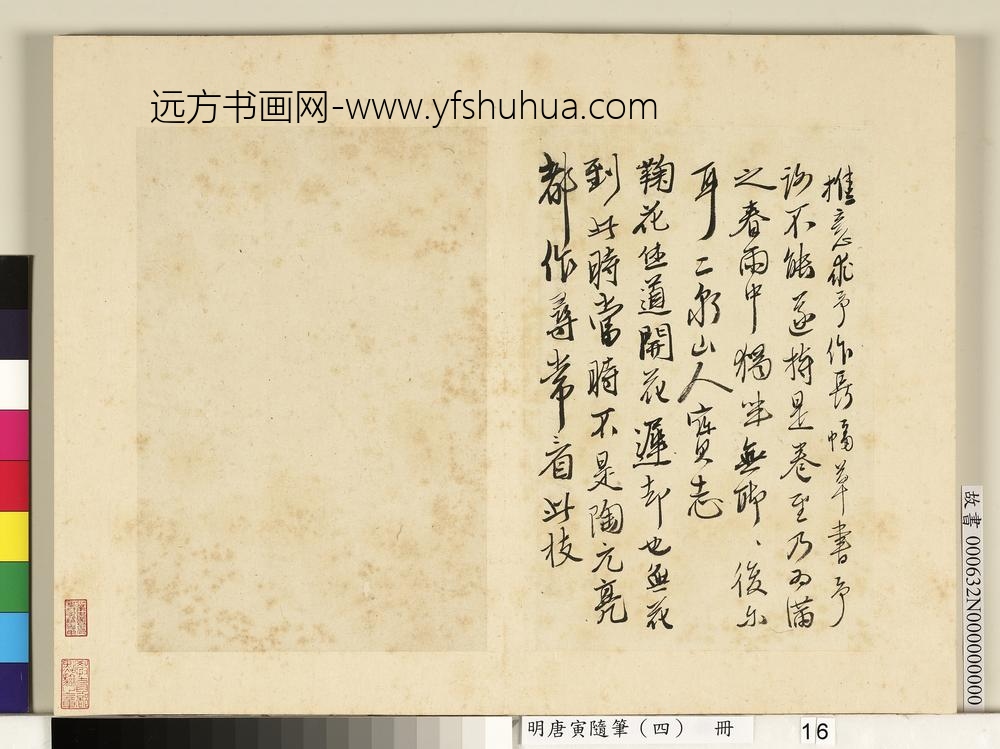 远方书画网-www.yfshuhua.com
推意求予作長幅草書予
詢不能遂持是卷至乃為滿
之春雨中獨坐無聊〻後尓
耳二泉山人寶志
鞠花佳道開花遲却也無花
到此時當時不是陶元亮
都作尋常看此枝
故書 000632N000000000
明唐寅隨筆（四） 冊
16